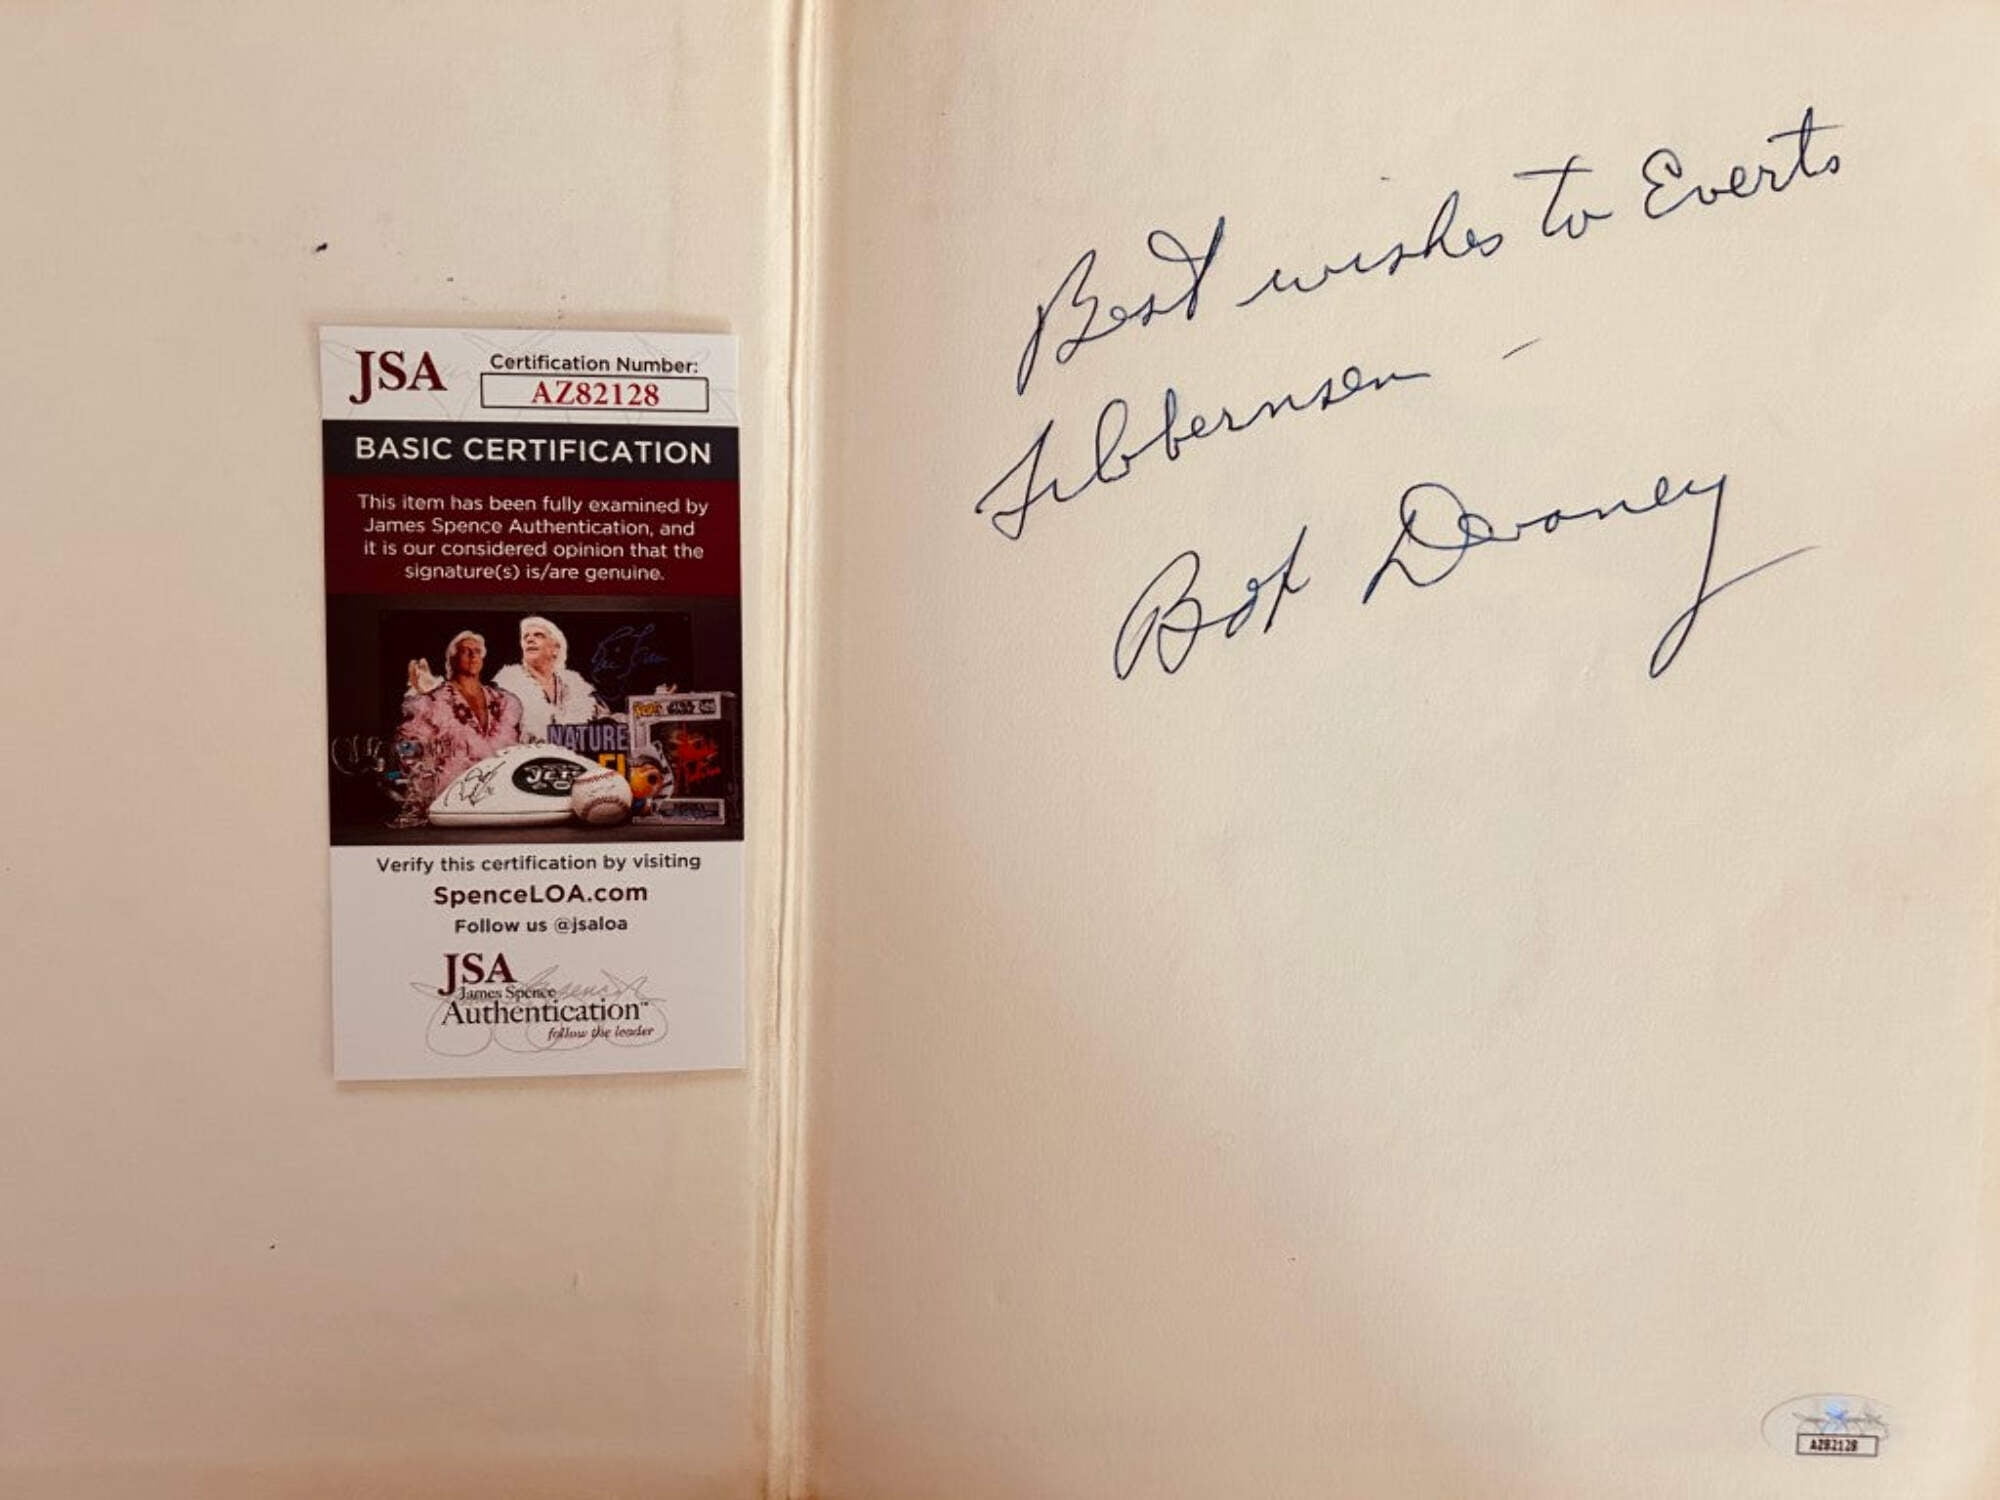 Best wishes to Everts
Fibbernsen -
Bob Devaney
JSA
Certification Number:
AZ82128
BASIC CERTIFICATION
This item has been fully examined by
James Spence Authentication, and
it is our considered opinion that the
signature(s) is/are genuine.
NATURE
JETS
Verify this certification by visiting
SpenceLOA.com
Follow us @jsaloa
JSA
James Spence
Authentication™
follow the leader
AZ82128